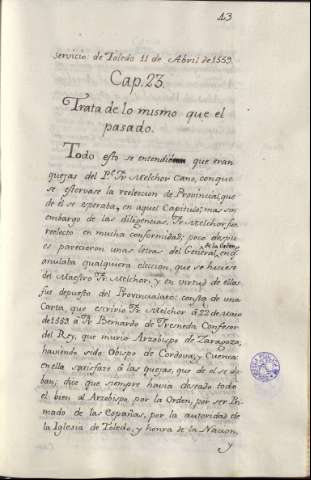 43
servicio: de Toledo 11 de Abril de 1559.
Cap. 23.
Trata de lo mismo que el
pasado.
Todo esto se entendió que eran
quejas del P.e Fr. Melchor Cano, con que
se estorvase la reeleccion de Provincial, que
de él se esperaba, en aquel Capitulo; mas sin
embargo de las diligencias, Fr. Melchor fue
reelecto en mucha conformidad; poco despu-
es parecieron unas letras del General, en q.
de la Orden
anulaba qualquiera eleccion, que se hiciese
del Maestro Fr. Melchor, y en virtud de ellas
fue depuesto del Provincialato: consta de una
Carta, que escrivio Fr. Melchor á 22 de Mayo
de 1559 á Fr. Bernardo de Fresneda Confesor
del Rey, que murió Arzobispo de Zaragoza,
haviendo sido Obispo de Cordova, y Cuenca:
en ella satisface á las quejas, que de él se da-
ban; dice que siempre havia deseado todo
el bien al Arzobispo por la Orden, por ser Pri-
mado de las Españas, por la autoridad de
la Iglesia de Toledo, y honra de la Nacion,
y